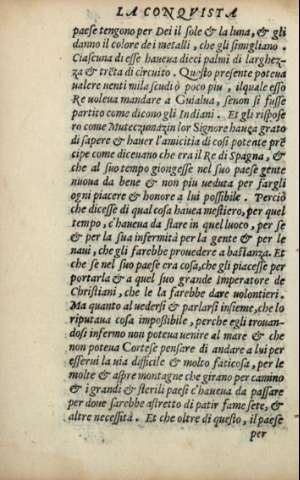 LA CONQVISTA
paese tengono per Dei il sole & la luna, & gli
danno il colore dei metalli, che gli simigliano.
Ciascuna di esse haueua dieci palmi di larghez-
za & trẽta di circuito. Questo presente poteua
ualere uenti mila scudi ò poco piu, il quale esso
Re uoleua mandare a Guialua, se non si fusse
partito come dicono gli Indiani. Et gli rispose
ro come Muteczumázin lor Signore hauea grato
di sapere & hauer l'amicitia di cosi potente prẽ
cipe come diceuano che era il Re di Spagna, &
che al suo tempo giongesse nel suo paese gente
nuoua da bene & non piu ueduta per fargli
ogni piacere & honore a lui possibile. Perciò
che dicesse di qual cosa hauea mestiero, per quel
tempo, c'haueua da stare in quel luoco, per se
& per la sua infermità per la gente & per le
naui, che gli farebbe prouedere a bastanza. Et
che se nel suo paese era cosa, che gli piacesse per
portarla & a quel suo grande Imperatore de
Christiani, che le la farebbe dare uolontieri.
Ma quanto al uedersi & parlarsi insieme, che lo
riputaua cosa impossibile, perche egli trouan-
dosi infermo non poteua uenire al mare & che
non poteua Cortese pensare di andare a lui per
esserui la uia difficile & molto faticosa, per le
molte & aspre montagne che girano per camino
& i grandi & sterili paesi c'haueua da passare
per doue sarebbe astretto di patir fame sete, &
altre necessità. Et che oltre di questo, il paese
per